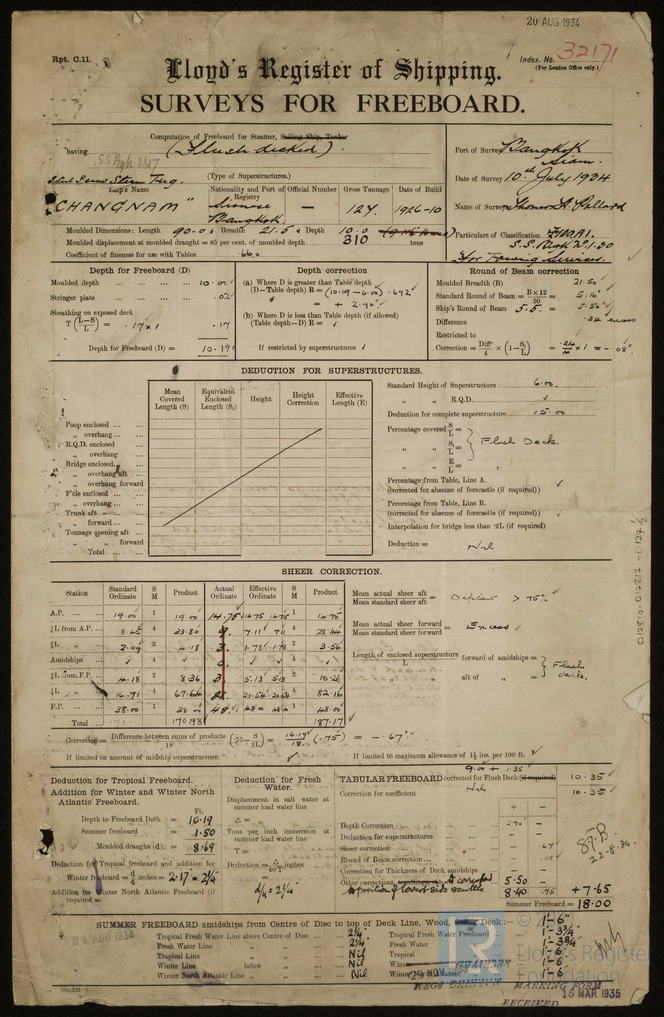 20 AUG 1934
Rpt. C.11.
Index No. 32171
(For London Office only.)
Lloyd's Register of Shipping.
SURVEYS FOR FREEBOARD.
Computation of Freeboard for Steamer, Sailing Ship, Tanker
having (Flush decked).
(Type of Superstructures.)
Port of Survey Bangkok
Siam.
Date of Survey 10th July 1934
Name of Surveyor Thomas H. Pallard
Particulars of Classification 100A1.
For Towing Services.
Ship's Name
Nationality and Port of Registry
Official Number
Gross Tonnage
Date of Build
"CHANGNAM"
Siamese
Bangkok.
—
124
1926-10
Moulded Dimensions: Length 90.0 Breadth 21.5 Depth 10.0
Moulded displacement at moulded draught = 85 per cent. of moulded depth 310 tons
Coefficient of fineness for use with Tables .66
Depth for Freeboard (D)
Moulded depth 10.00
Stringer plate .02
Sheathing on exposed deck
T (L-S/L) = .17 x 1 .17
Depth for Freeboard (D) = 10.19
Depth correction
(a) Where D is greater than Table depth
(D-Table depth) R = (10.19 - 6.00) .692
= + 2.90"
(b) Where D is less than Table depth (if allowed)
(Table depth-D) R =
If restricted by superstructures
Round of Beam correction
Moulded Breadth (B) 21.50
Standard Round of Beam = B×12/50 = 5.16
Ship's Round of Beam = 5.5 = 5.50
Difference .34 excess
Restricted to
Correction = Diff/4 × (1 - S/L) = .34/4 x 1 = -.08"
DEDUCTION FOR SUPERSTRUCTURES.
Mean Covered Length (S)
Equivalent Enclosed Length (S₁)
Height
Height Correction
Effective Length (E)
Poop enclosed
" overhang
R.Q.D. enclosed
" overhang
Bridge enclosed
" overhang aft
" overhang forward
F'cle enclosed
" overhang
Trunk aft
" forward
Tonnage opening aft
" " forward
Total
Standard Height of Superstructure 6.00
" " R.Q.D.
Deduction for complete superstructure 15.00
Percentage covered S/L =
" " S₁/L = Flush Deck.
" " E/L =
Percentage from Table, Line A.
(corrected for absence of forecastle (if required))
Percentage from Table, Line B.
(corrected for absence of forecastle (if required))
Interpolation for bridge less than .2L (if required)
Deduction = Nil
SHEER CORRECTION.
Station
Standard Ordinate
S M
Product
Actual Ordinate
Effective Ordinate
S M
Product
A.P. 19.00 1 19.00 14.75 14.75 14.75 1 14.75
¼L from A.P. 8.45 4 33.80 7.11 7.11 4 28.44
½L " 2.09 2 4.18 1.78 1.78 2 3.56
Amidships 4
½L from F.P. 4.18 2 8.36 5.13 5.13 2 10.26
¼L " 16.91 4 67.64 20.54 20.54 4 82.16
F.P. 38.00 1 38.00 48.00 48.00 1 48.00
Total 170.98 187.17
Mean actual sheer aft / Mean standard sheer aft = Deficient > 75%
Mean actual sheer forward / Mean standard sheer forward = Excess
Length of enclosed superstructure / L forward of amidships =
" " aft of " = Flush deck.
Correction = Difference between sums of products / 18 (.75 - S/2L) = 16.19/18 (.75) = - .67"
If limited on account of midship superstructure.
If limited to maximum allowance of 1½ ins. per 100 ft.
9.00 + 1.35
Deduction for Tropical Freeboard.
Addition for Winter and Winter North Atlantic Freeboard.
Ft.
Depth to Freeboard Deck = 10.19
Summer freeboard = 1.50
Moulded draught (d) = 8.69
Deduction for Tropical freeboard and addition for
Winter freeboard = d/4 inches = 2.17 = 2¼"
Addition for Winter North Atlantic Freeboard (if required) =
Deduction for Fresh Water.
Displacement in salt water at summer load water line
Δ =
Tons per inch immersion at summer load water line
T =
Deduction = Δ/40T inches
= d/4 = 2¼"
TABULAR FREEBOARD corrected for Flush Deck (if required) 10.35
Correction for coefficient Nil 10.35
+ -
Depth Correction 2.90
Deduction for superstructures
Sheer correction .67
Round of Beam correction .08
Correction for Thickness of Deck amidships
Other corrections to corrected 5.50
position of lowest side scuttle 8.40 .75 + 7.65
Summer Freeboard = 18.00
22.8.34.
SUMMER FREEBOARD amidships from Centre of Disc to top of Deck Line, Wood, Deck: 1'-6"
Tropical Fresh Water Line above Centre of Disc 2¼"
Fresh Water Line " " 2¼"
Tropical Line " " Nil
Winter Line below " " Nil
Winter North Atlantic Line " " Nil
Tropical Fresh Water Freeboard 1'-3¾"
Fresh Water " 1'-3¾"
Tropical " 1'-6"
Winter " 1'-6"
Winter North 1'-6"
24 AUG 1934
MARKING FORM
RECEIVED
15 MAR 1935
012810-012817-0127 ½
© Lloyd's Register
Foundation